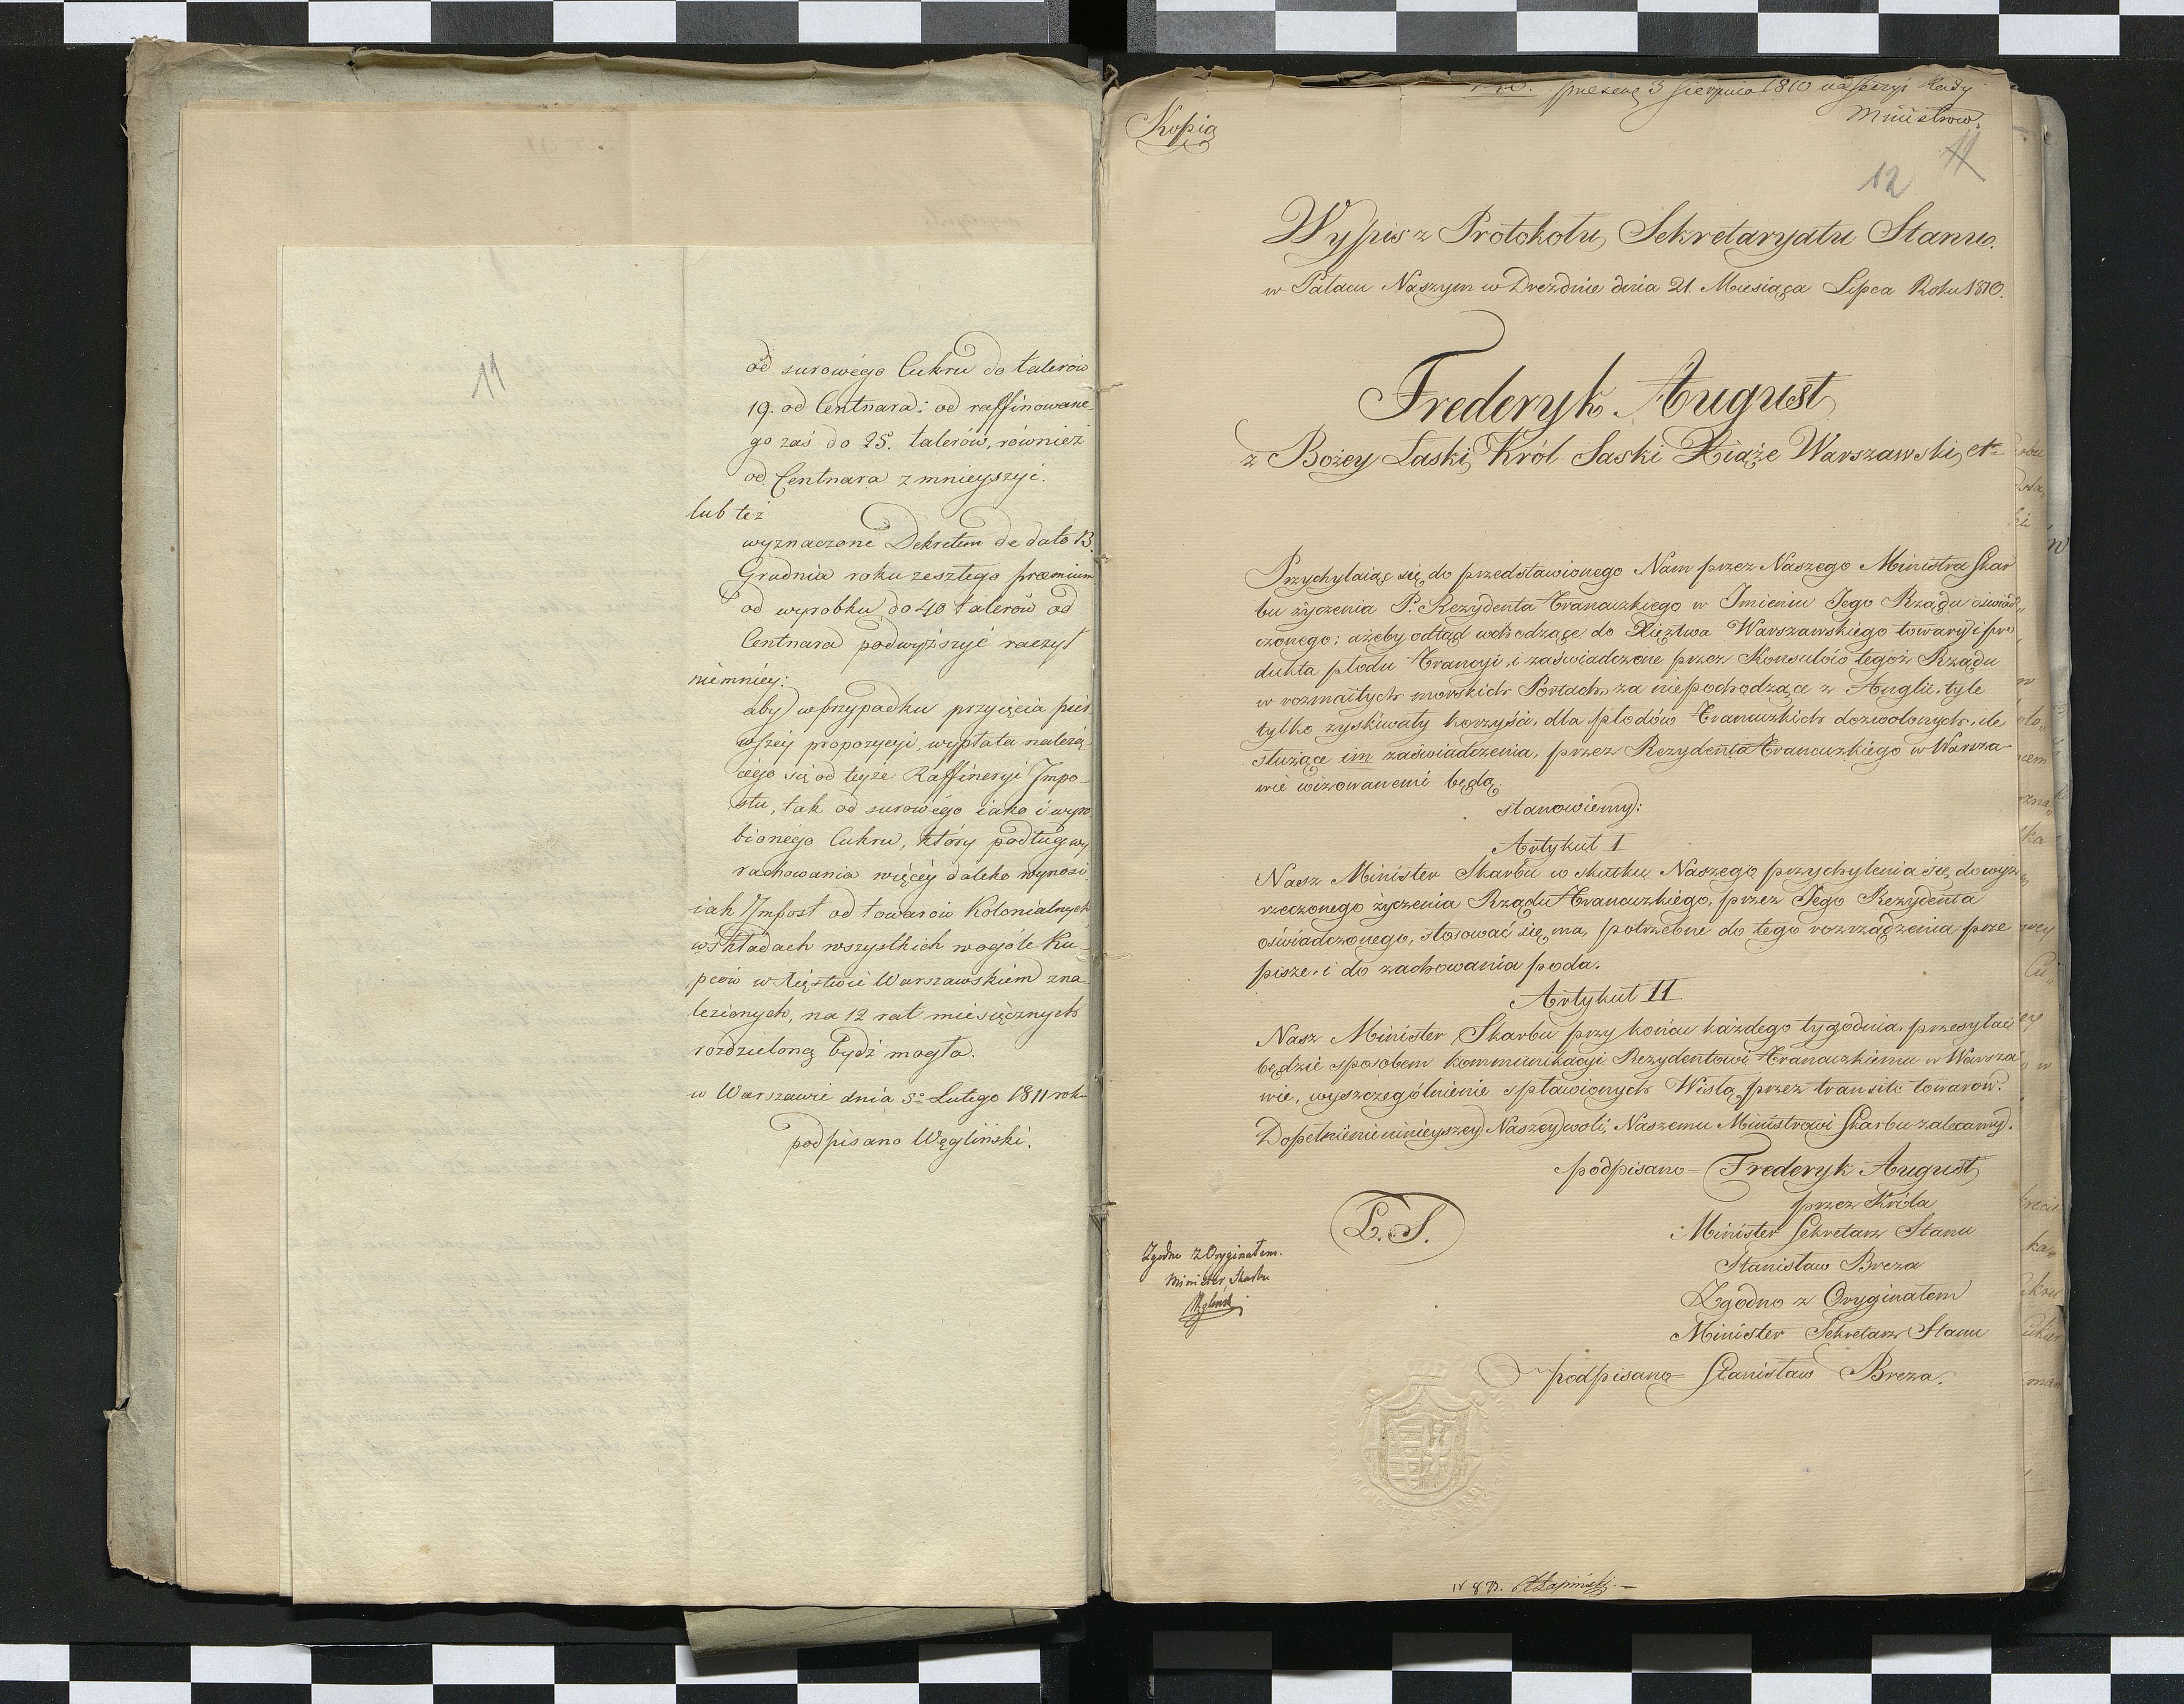 11
od surowégo Cukru do talerów
19. od Centnara: od raffinowane-
go zaś do 25. talerów, również
od Centnara zmnieyszyć.
lub też
wyznaczone Dekretem de dato 13.
Grudnia roku zeszłego præmium
od wyrobku do 40 talerów od
Centnara podwyższyć raczył
niemniey:
aby w przypadku przyięcia pier
wszéy propozycyi, wypłata należą-
cégo się od téyże Raffineryi Impo-
stu, tak od surowégo iako i wyro
bionégo Cukru, który podług wy
rachowania więcéy daleko wynosi,
iak Impost od towarów Kolonialnych
w składach wszystkich wogóle Ku-
pców w Xięstwie Warszawskiem zna
lezionych, na 12 rat miesięcznych
rozdzieloną bydź mogła.
w Warszawie dnia 5º Lutego 1811 roku
podpisano Węgliński.
Kopia
3 Sierpnia 1810 na Sessyi Rady
Ministrow.
11
12
Wypis z Protokołu Sekretaryatu Stanu.
w Pałacu Naszym w Dreźdnie dnia 21. Miesiąca Lipca Roku 1810.
Frederyk August
z Bożey Łaski, Król Saski Xiąże Warszawski, etc
Przychylaiąc się do przedstawionego Nam przez Naszego Ministra Skar
bu życzenia P. Rezydenta Francuzkiego w Imieniu Jego Rządu oświad„
czonego; ażeby odtąd wchodzące do Xięztwa Warszawskiego towary i pro
dukta płodu Francyi, i zaświadczone przez Konsulów tegoż Rządu
w rozmaitych morskich Portach, za niepochodzące z Anglii, tyle
tylko zyskiwały korzyści, dla płodów Francuzkich dozwolonych, ile
służące im zaświadczenia, przez Rezydenta Francuzkiego w Warsza-
wie wizowanemi będą.
stanowiemy:
Artykuł I
Nasz Minister Skarbu w skutku Naszego przychylenia się do wyż
rzeczonego życzenia Rządu Francuzkiego, przez Jego Rezydenta
oświadczonego, stosować się ma, potrzebne do tego rozrządzenia prze
pisze, i do zachowania poda.
Artykuł II
Nasz Minister Skarbu przy końcu każdego tygodnia, przesyłać
będzie sposobem kommunikacyi Rezydentowi Francuzkiemu w Warsza
wie, wyszczególnienie spławionych Wisłą, przez transito towarow.
Dopełnienie ninieyszey Naszey woli, Naszemu Ministrowi Skarbu zalecamy.
podpisano = Frederyk August
przez Króla
Minister Sekretarz Stanu
Stanisław Breza
Zgodno z Oryginałem
Minister Sekretarz Stanu
podpisano = Stanisław Breza.
L. S.
Zgodno z Oryginałem.
Minister Skarbu
Węgliński